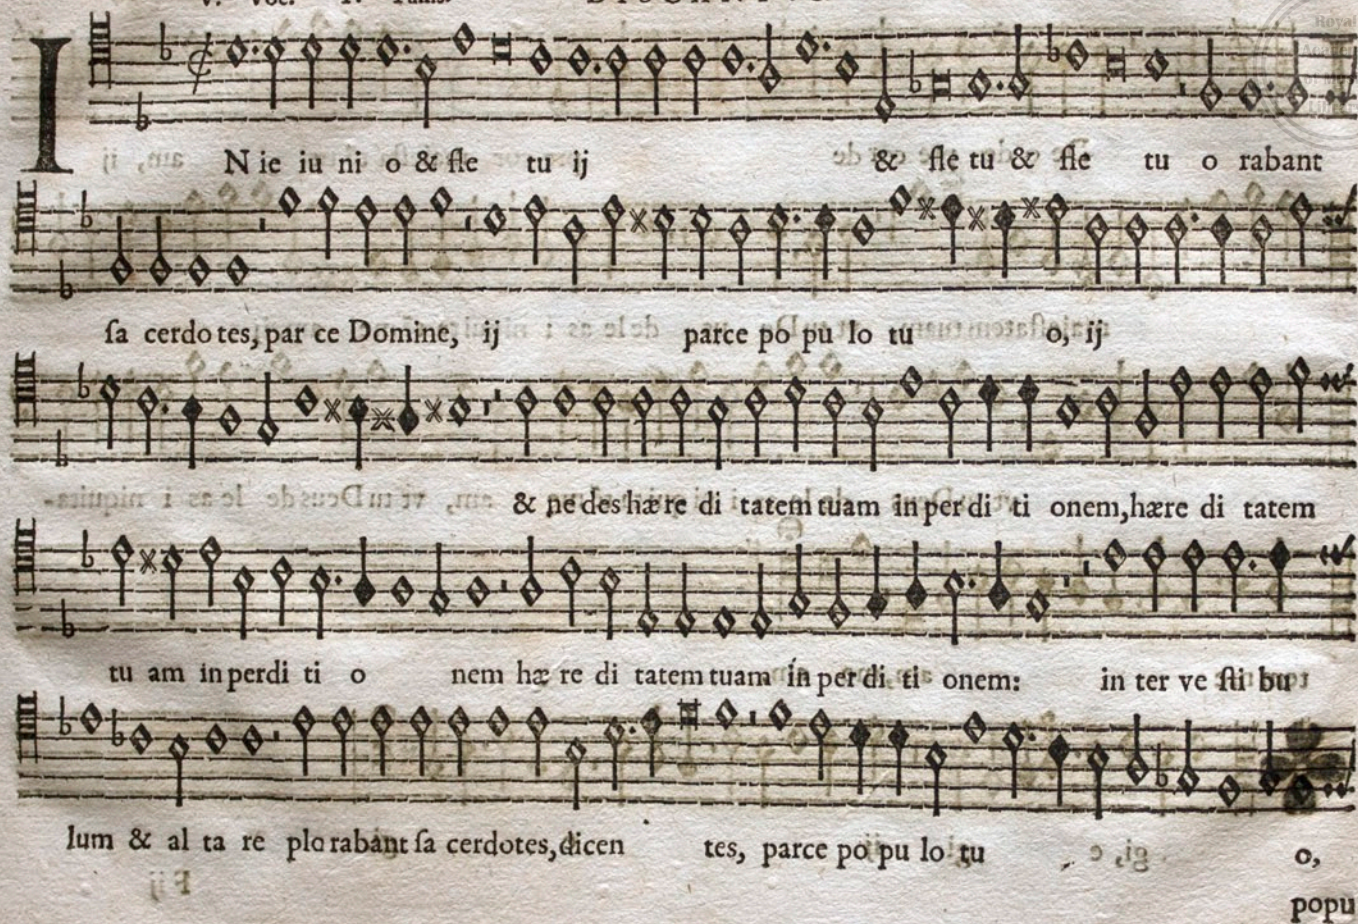 DISCANTVS
IN ie iu ni o & fle tu ij & fle tu & fle tu o rabant
ſa cerdo tes, par ce Domine, ij parce po pu lo tu o, ij
& ne des hæ re di tatem tuam in per di ti onem, hære di tatem
tu am in perdi ti o nem hæ re di tatem tuam in per di ti onem: in ter ve ſti bu
lum & al ta re plo rabant ſa cerdotes, dicen tes, parce po pu lo tu o,
F ij
popu